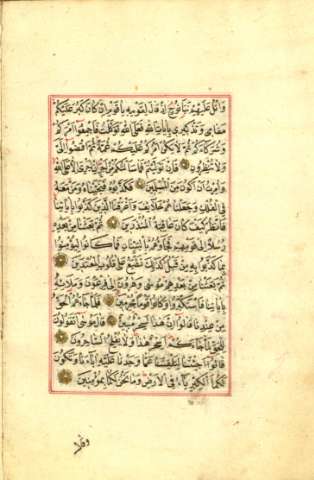 وَاتْلُ عَلَيْهِمْ نَبَأَ نُوحٍ إِذْ قَالَ لِقَوْمِهِ يَا قَوْمِ إِنْ كَانَ كَبُرَ عَلَيْكُمْ
مَقَامِي وَتَذْكِيرِي بِآيَاتِ اللَّهِ فَعَلَى اللَّهِ تَوَكَّلْتُ فَأَجْمِعُوا أَمْرَكُمْ
وَشُرَكَاءَكُمْ ثُمَّ لَا يَكُنْ أَمْرُكُمْ عَلَيْكُمْ غُمَّةً ثُمَّ اقْضُوا إِلَيَّ
وَلَا تُنْظِرُونِ فَإِنْ تَوَلَّيْتُمْ فَمَا سَأَلْتُكُمْ مِنْ أَجْرٍ إِنْ أَجْرِيَ إِلَّا عَلَى اللَّهِ
وَأُمِرْتُ أَنْ أَكُونَ مِنَ الْمُسْلِمِينَ فَكَذَّبُوهُ فَنَجَّيْنَاهُ وَمَنْ مَعَهُ
فِي الْفُلْكِ وَجَعَلْنَاهُمْ خَلَائِفَ وَأَغْرَقْنَا الَّذِينَ كَذَّبُوا بِآيَاتِنَا
فَانْظُرْ كَيْفَ كَانَ عَاقِبَةُ الْمُنْذَرِينَ ثُمَّ بَعَثْنَا مِنْ بَعْدِهِ
رُسُلًا إِلَى قَوْمِهِمْ فَجَاؤُهُمْ بِالْبَيِّنَاتِ فَمَا كَانُوا لِيُؤْمِنُوا
بِمَا كَذَّبُوا بِهِ مِنْ قَبْلُ كَذَلِكَ نَطْبَعُ عَلَى قُلُوبِ الْمُعْتَدِينَ
ثُمَّ بَعَثْنَا مِنْ بَعْدِهِمْ مُوسَى وَهَرُونَ إِلَى فِرْعَوْنَ وَمَلَائِهِ
بِآيَاتِنَا فَاسْتَكْبَرُوا وَكَانُوا قَوْمًا مُجْرِمِينَ فَلَمَّا جَاءَهُمُ الْحَقُّ
مِنْ عِنْدِنَا قَالُوا إِنَّ هَذَا لَسِحْرٌ مُبِينٌ قَالَ مُوسَى أَتَقُولُونَ
لِلْحَقِّ لَمَّا جَاءَكُمْ أَسِحْرٌ هَذَا وَلَا يُفْلِحُ السَّاحِرُونَ
قَالُوا أَجِئْتَنَا لِتَلْفِتَنَا عَمَّا وَجَدْنَا عَلَيْهِ آبَاءَنَا وَتَكُونَ
لَكُمَا الْكِبْرِيَاءُ فِي الْأَرْضِ وَمَا نَحْنُ لَكُمَا بِمُؤْمِنِينَ
وقال